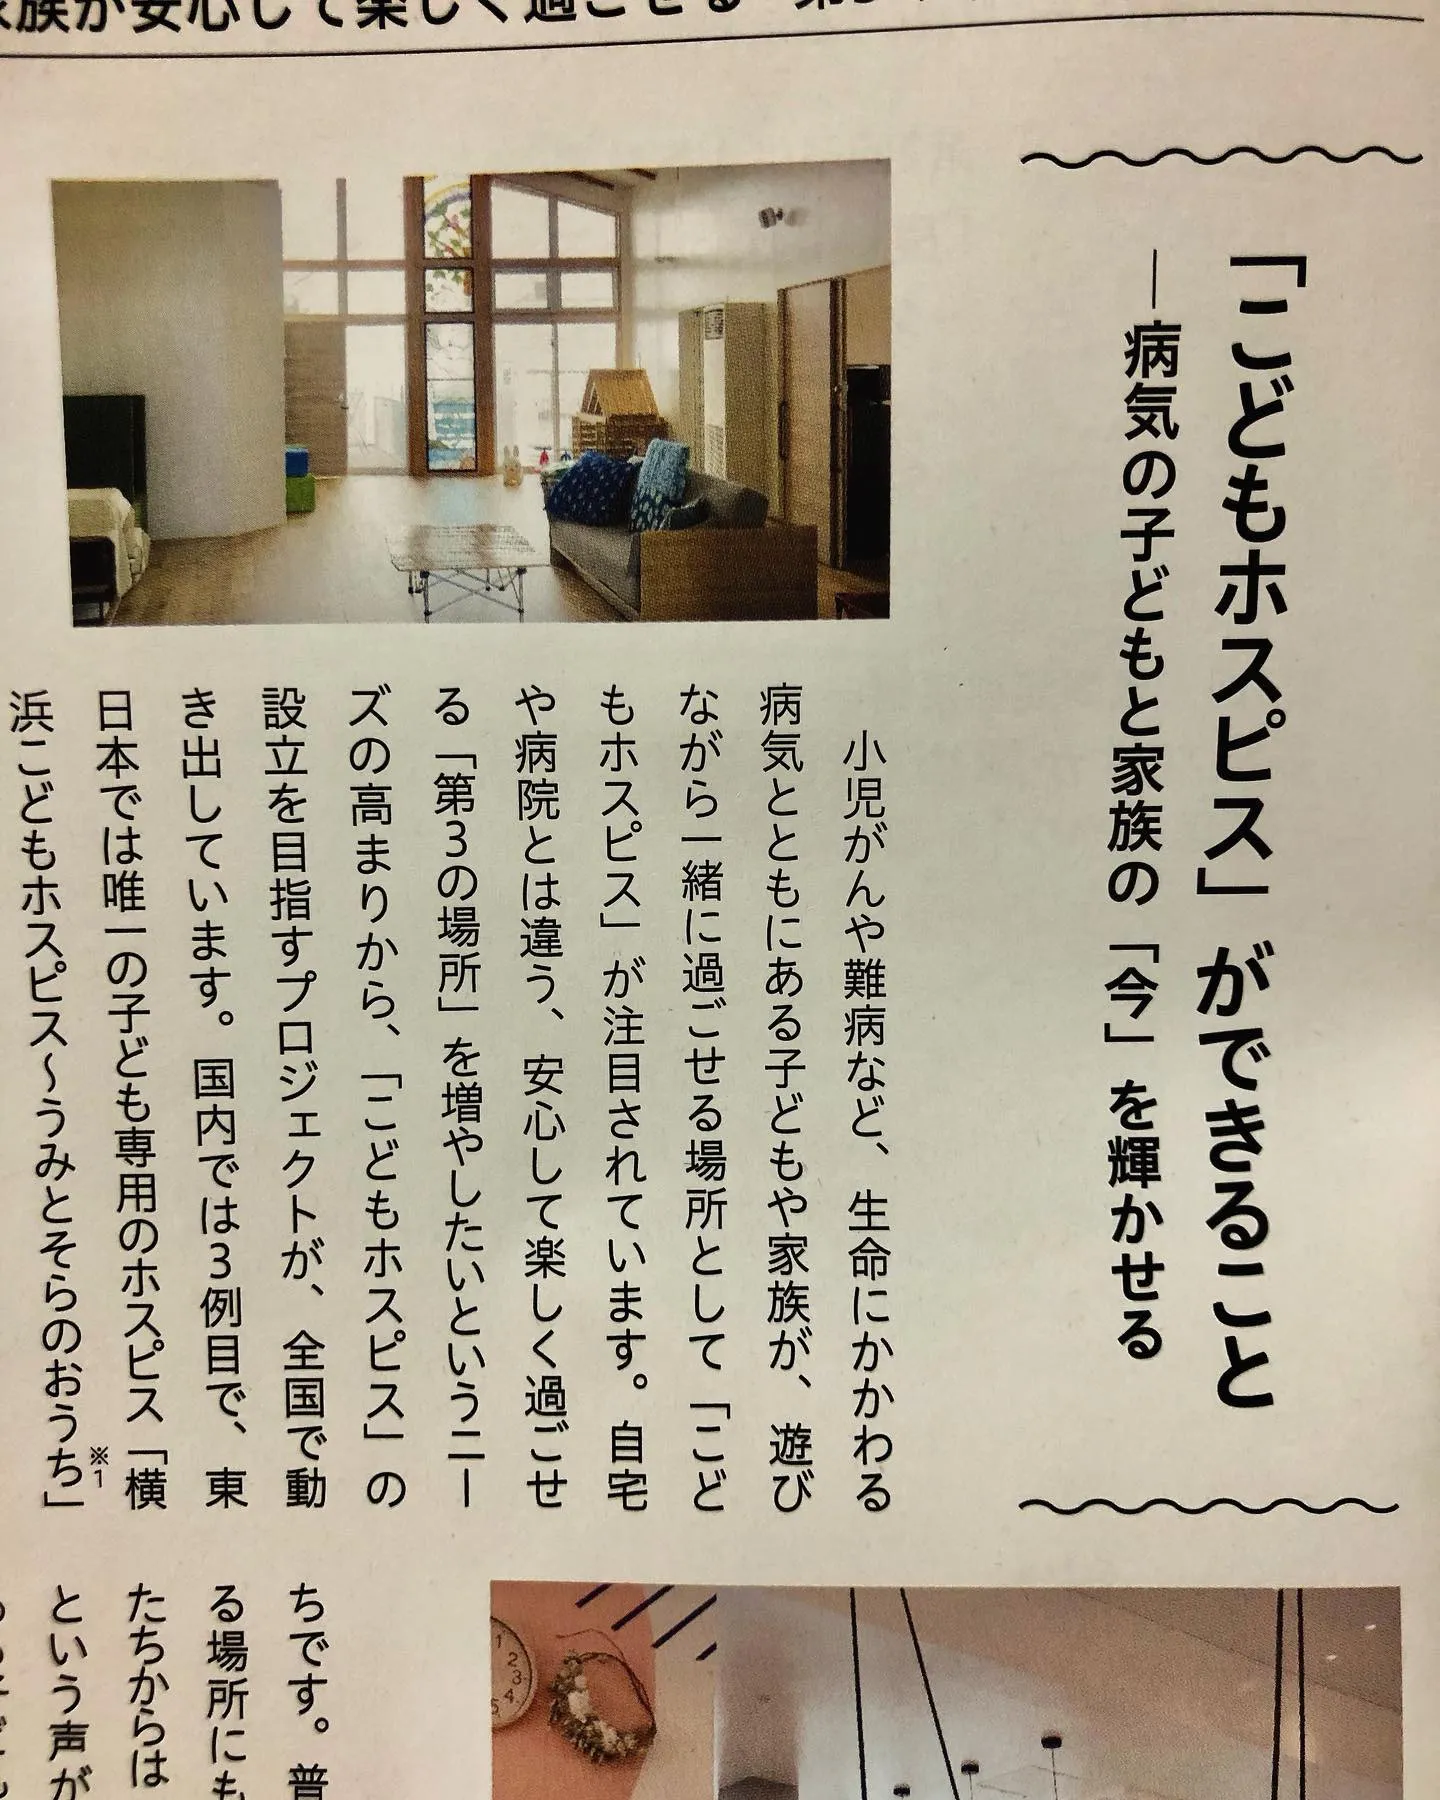 家族が安心して楽しく過ごせる
「こどもホスピス」ができること
―病気の子どもと家族の「今」を輝かせる
小児がんや難病など、生命にかかわる
病気とともにある子どもや家族が、遊び
ながら一緒に過ごせる場所として「こど
もホスピス」が注目されています。自宅
や病院とは違う、安心して楽しく過ごせ
る「第3の場所」を増やしたいというニー
ズの高まりから、「こどもホスピス」の
設立を目指すプロジェクトが、全国で動
き出しています。国内では3例目で、東
日本では唯一の子ども専用のホスピス「横
浜こどもホスピス～うみとそらのおうち」
※1
ちです。普
る場所にも
たちからは
という声が
1
2
3
4
5